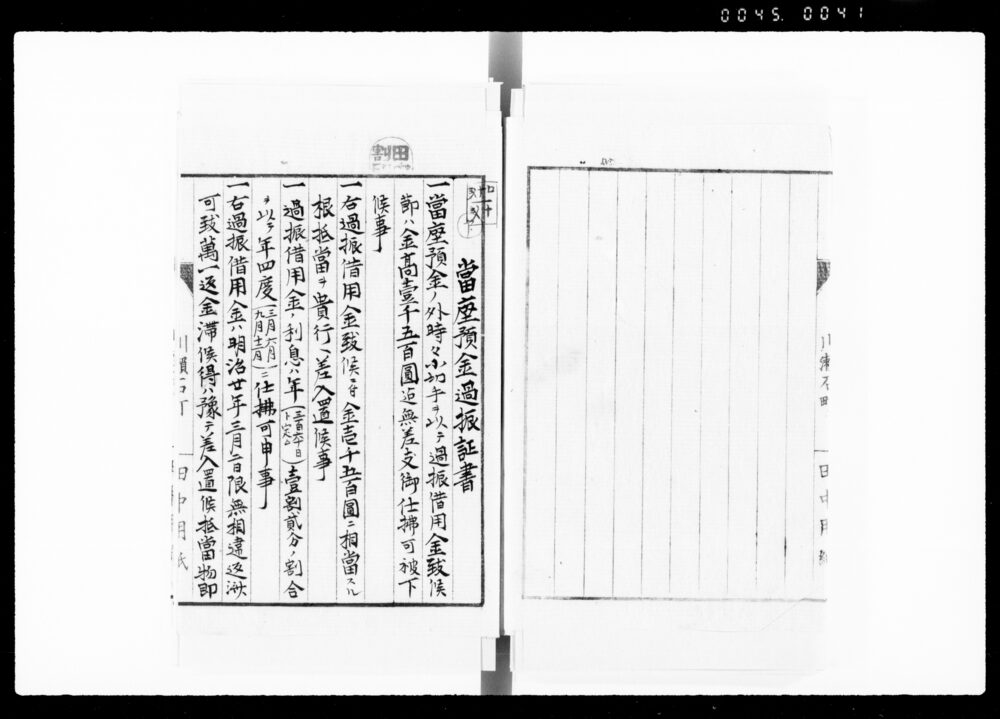 0045. 0041
割田
當座預金過振証書
一當座預金ノ外時々小切手ヲ以テ過振借用金致候
節ハ金高壹千五百圓迄無差支御仕拂可被下
候事
一右過振借用金致候ニ付金壱千五百圓ニ相當スル
根抵當ヲ貴行ヘ差入置候事
一過振借用金ノ利息ハ年(三百六十日ト定ム)壹割貳分ノ割合
ヲ以テ年四度(三月六月九月十二月)ニ仕拂可申事
一右過振借用金ハ明治廿年三月 日限無相違返濟
可致萬一返金滞候得ハ豫テ差入置候抵當物即
川瀬石町
田中用紙